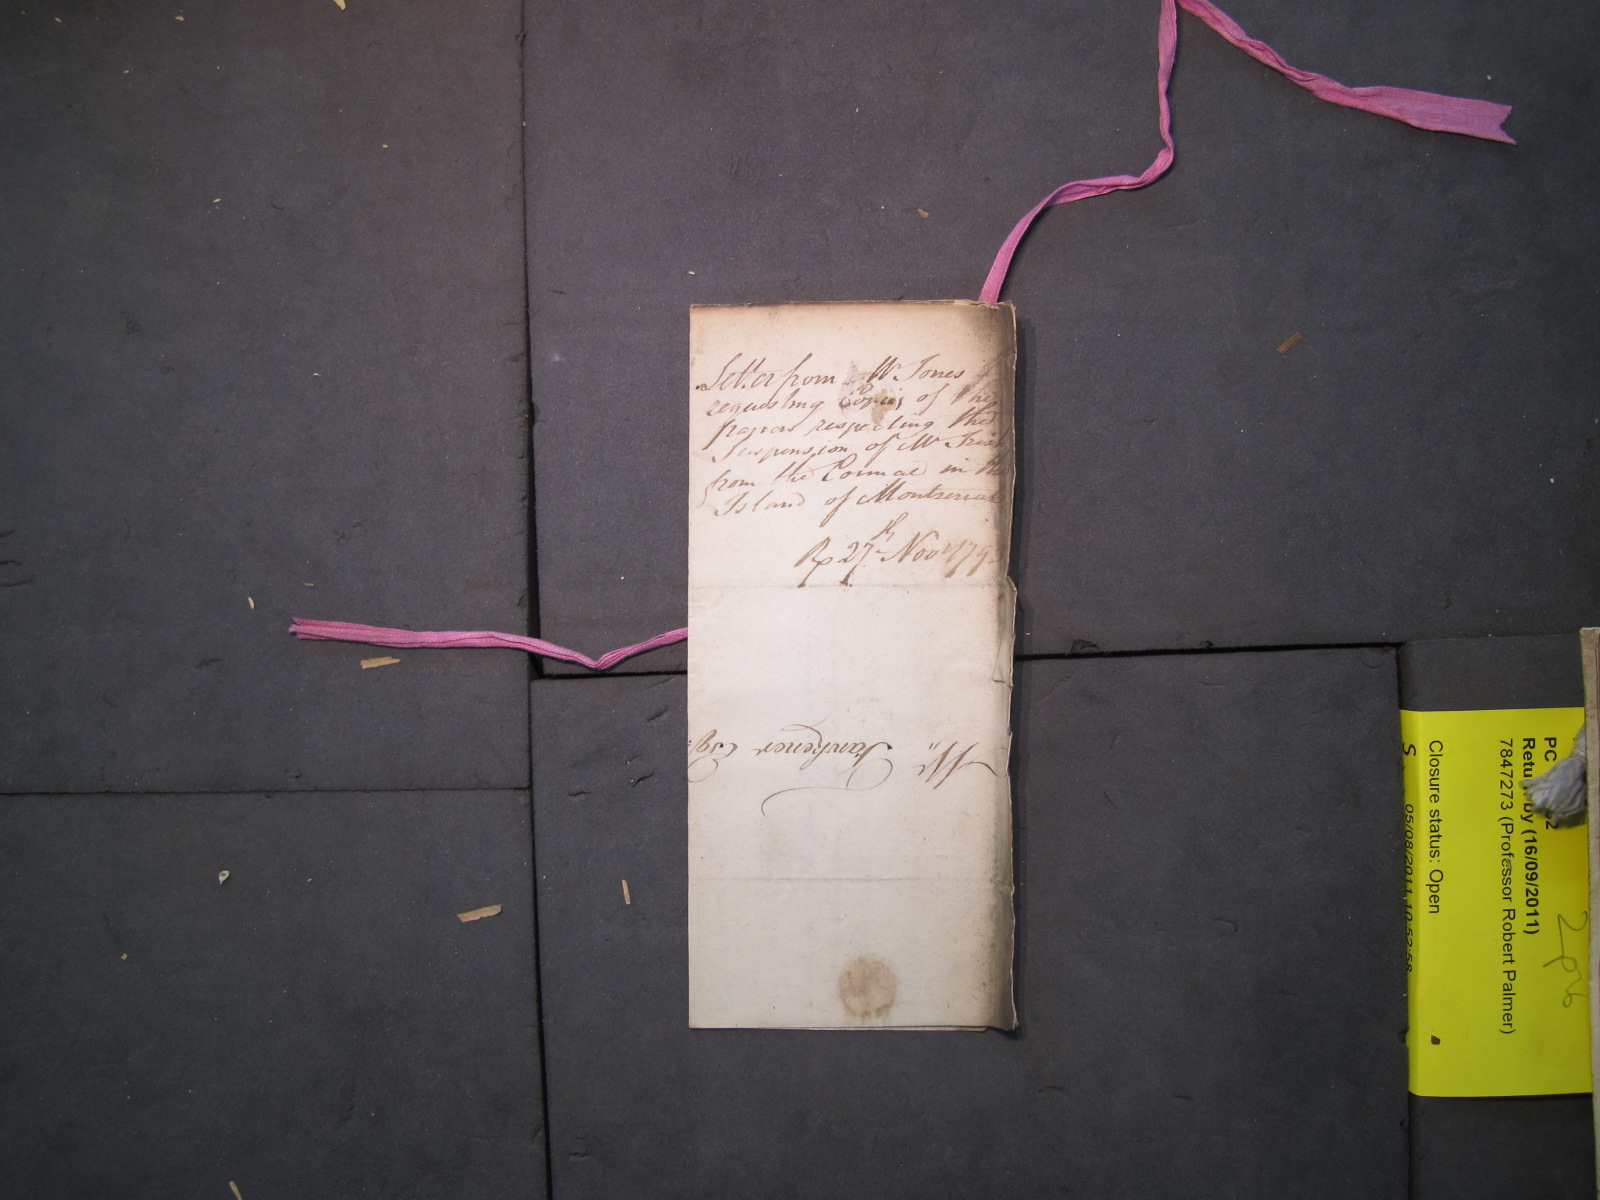 Letter from Mr Jones
requesting Copies of the
papers respecting the
Suspension of Mr Irish
from the Council in the
Island of Montserrat
Rx 27th Novr 179
Wm Fawkener Esqr
PC
Return by (16/09/2011)
7847273 (Professor Robert Palmer)
Closure status: Open
S
05/08/2011 10:52:58